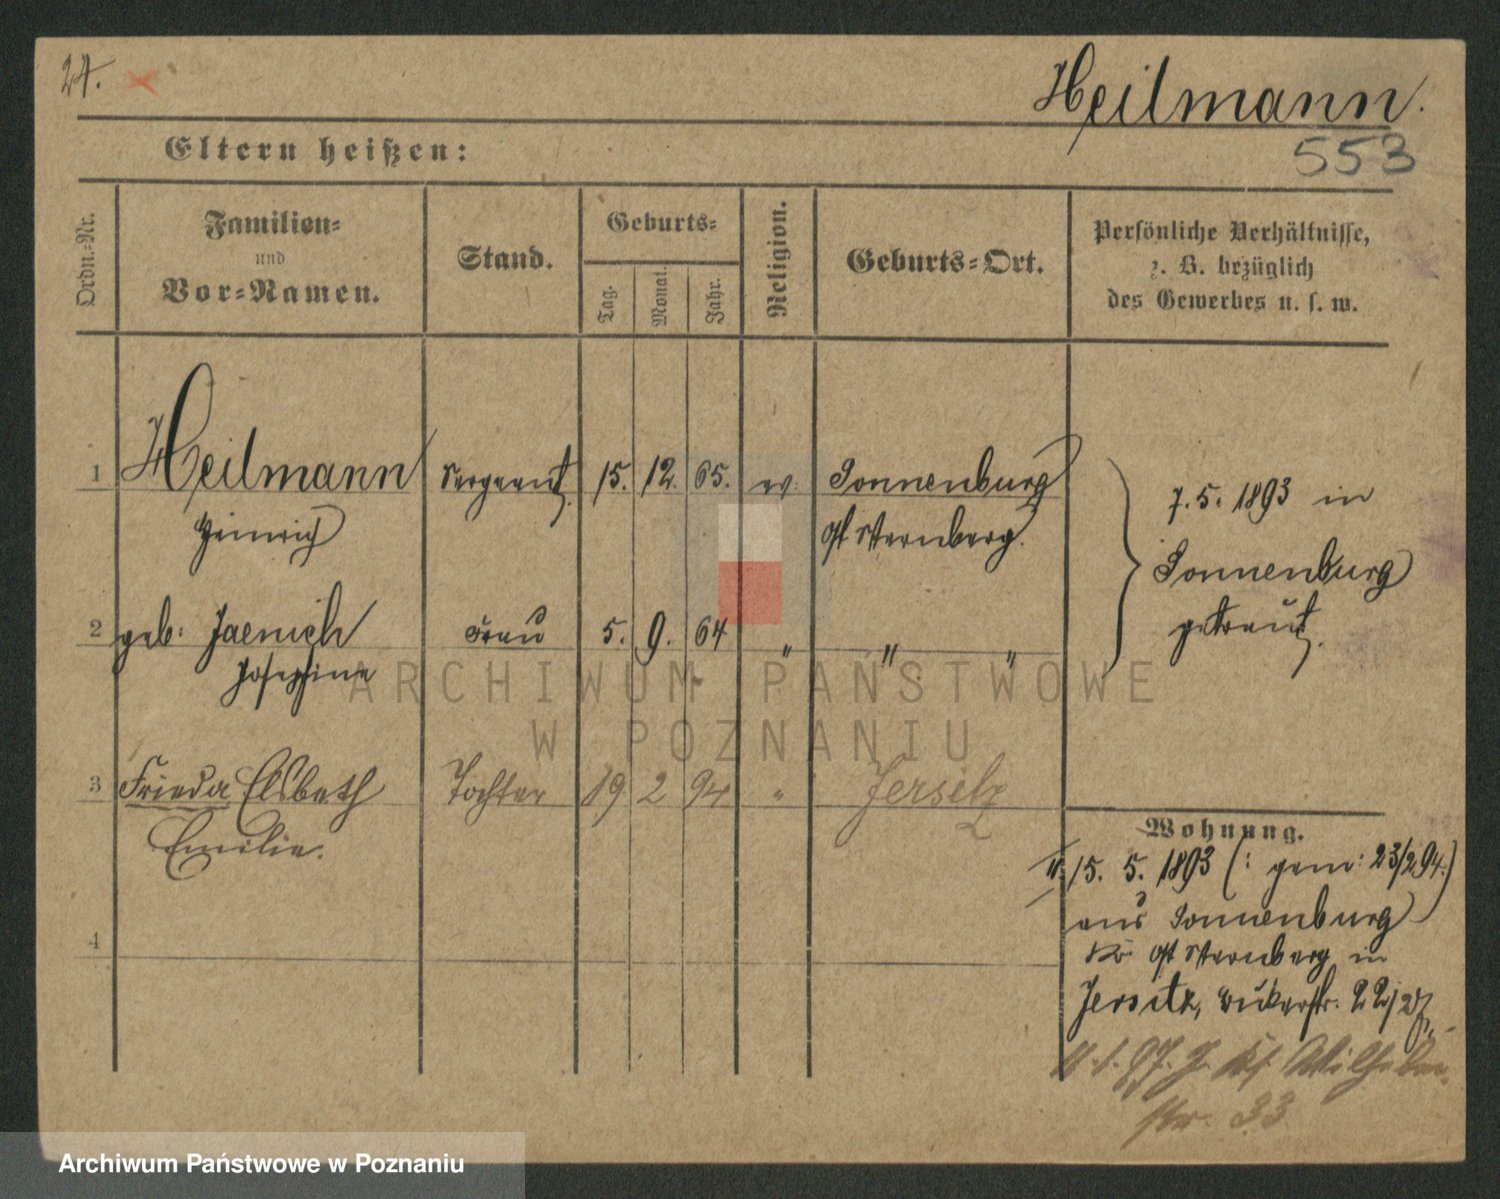 24.
Heilmann.
553
Eltern heißen:
Ordn.-Nr.
Familien-
und
Vor-Namen.
Stand.
Geburts-
Tag.
Monat.
Jahr.
Religion.
Geburts-Ort.
Persönliche Verhältnisse,
z. B. bezüglich
des Gewerbes u. s. w.
1 Heilmann Sergeant 15. 12. 65. ev. Sonnenburg
Heinrich Ost Sternberg.
7. 5. 1893 in
Sonnenburg
getraut.
2 geb: Jaenich Frau 5. 9. 64 " " "
Josephine
3 Frieda Elsbeth Tochter 19 2 94 " Jersitz
Emilie.
4
Wohnung.
15. 5. 1893 (: gem: 23/2 94.)
aus Sonnenburg
Kr. Ost Sternberg in
Jersitz,
33
ARCHIWUM PAŃSTWOWE
W POZNANIU
Archiwum Państwowe w Poznaniu